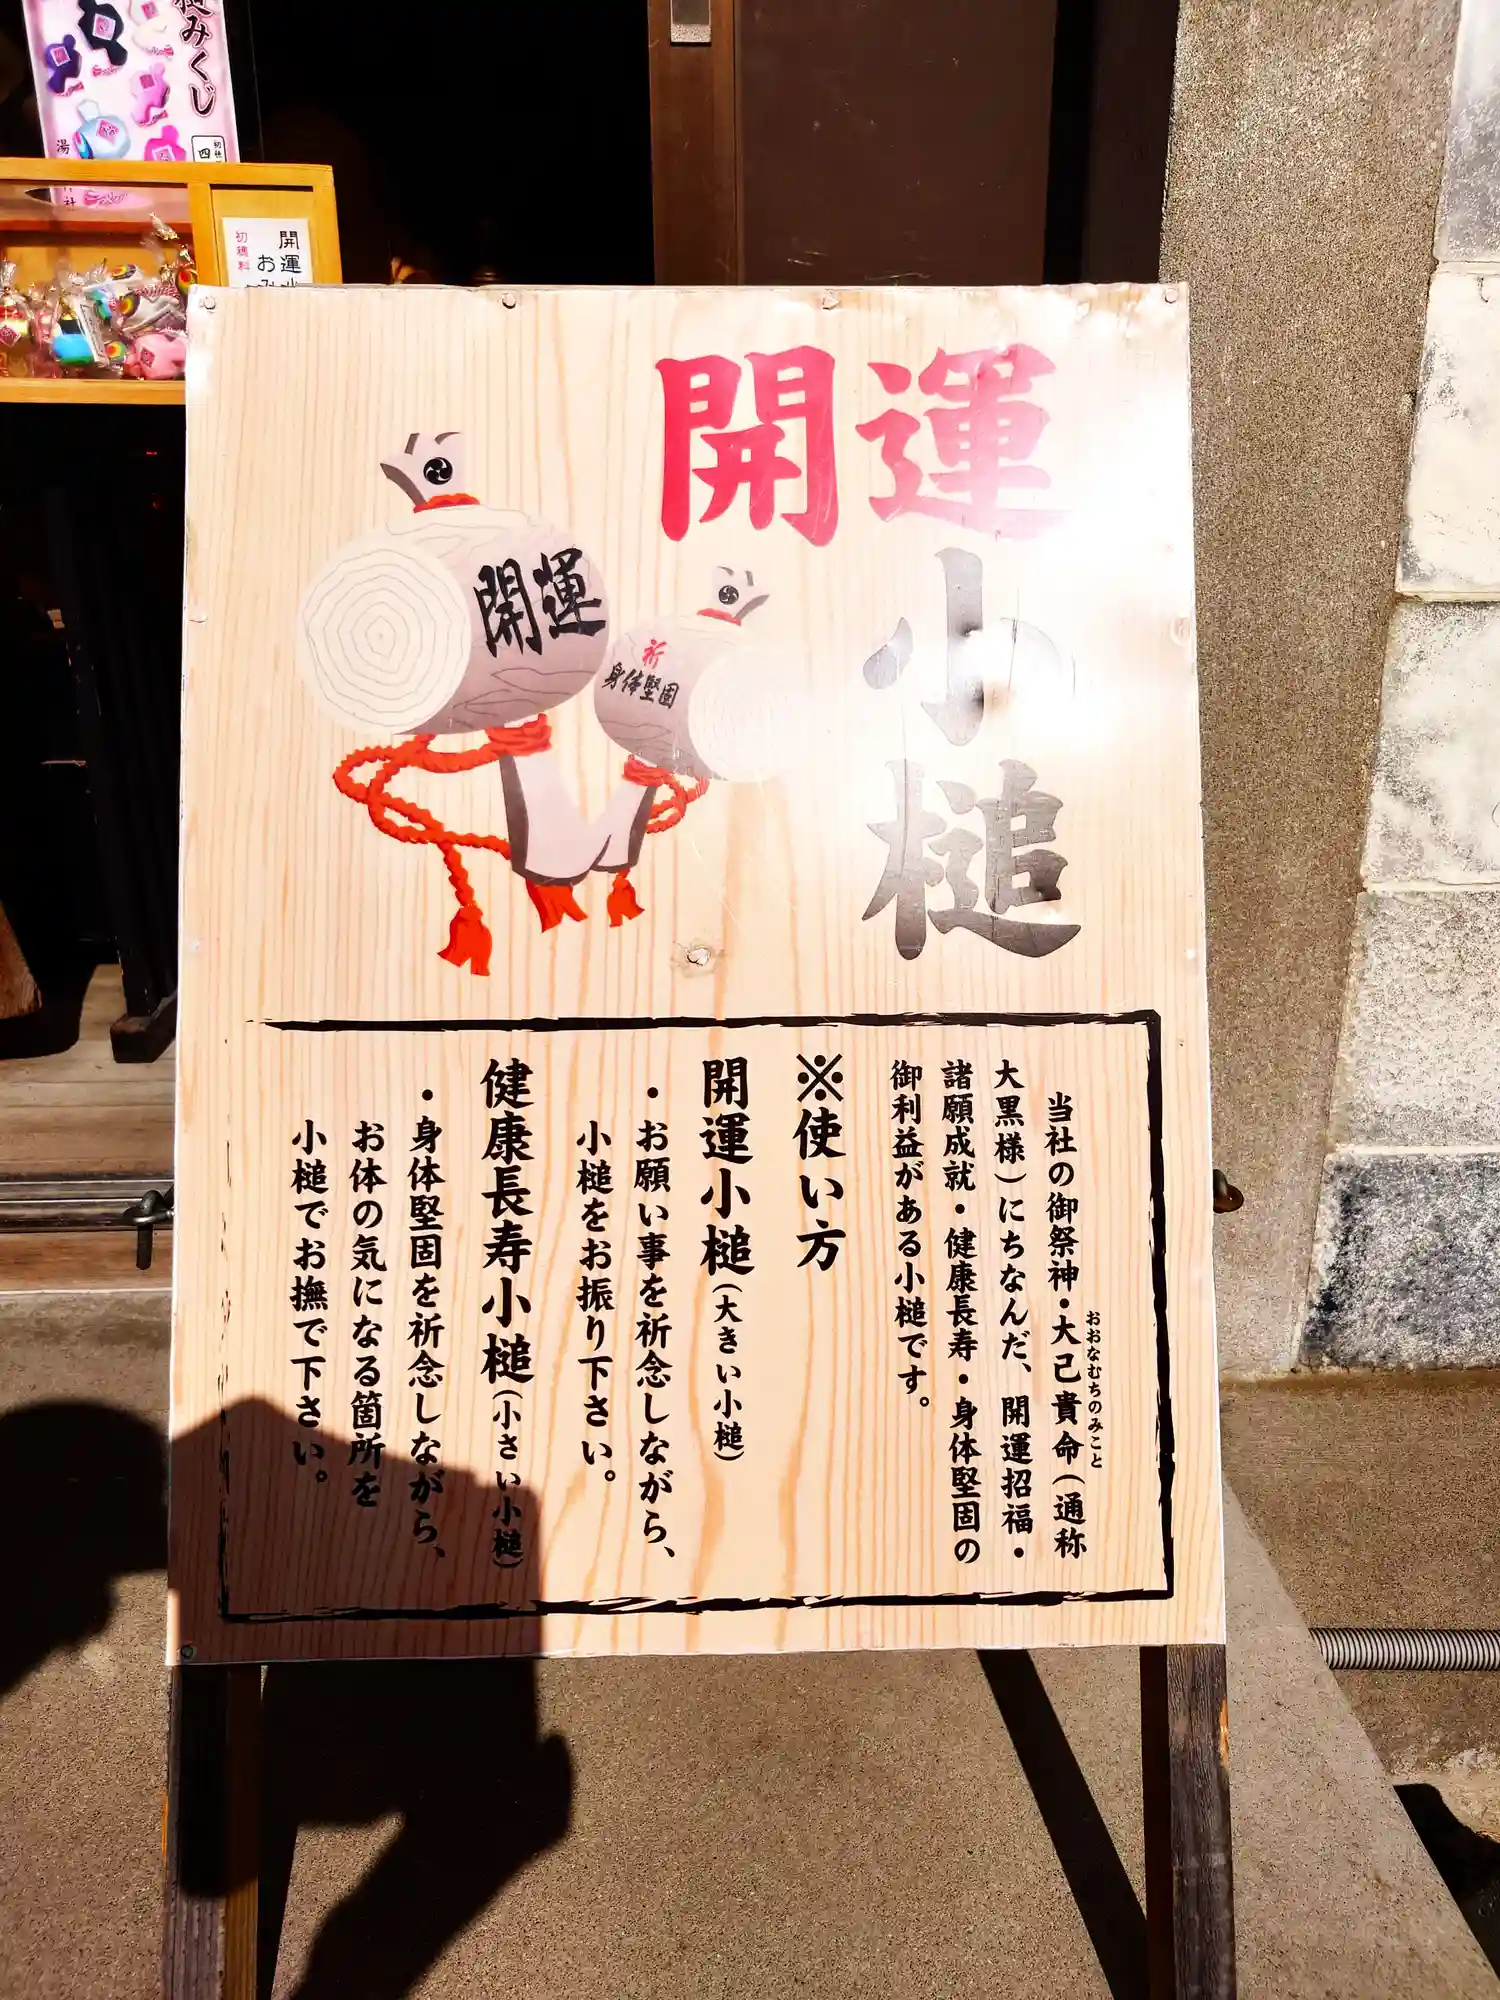 開運
小槌
開運
祈
身体堅固
当社の御祭神・大己貴命(通称
おおなむちのみこと
大黒様)にちなんだ、開運招福・
諸願成就・健康長寿・身体堅固の
御利益がある小槌です。
※使い方
開運小槌(大きい小槌)
・お願い事を祈念しながら、
小槌をお振り下さい。
健康長寿小槌(小さい小槌)
・身体堅固を祈念しながら、
お体の気になる箇所を
小槌でお撫で下さい。
みくじ
四
湯
社
開運小
おみ
初穂料